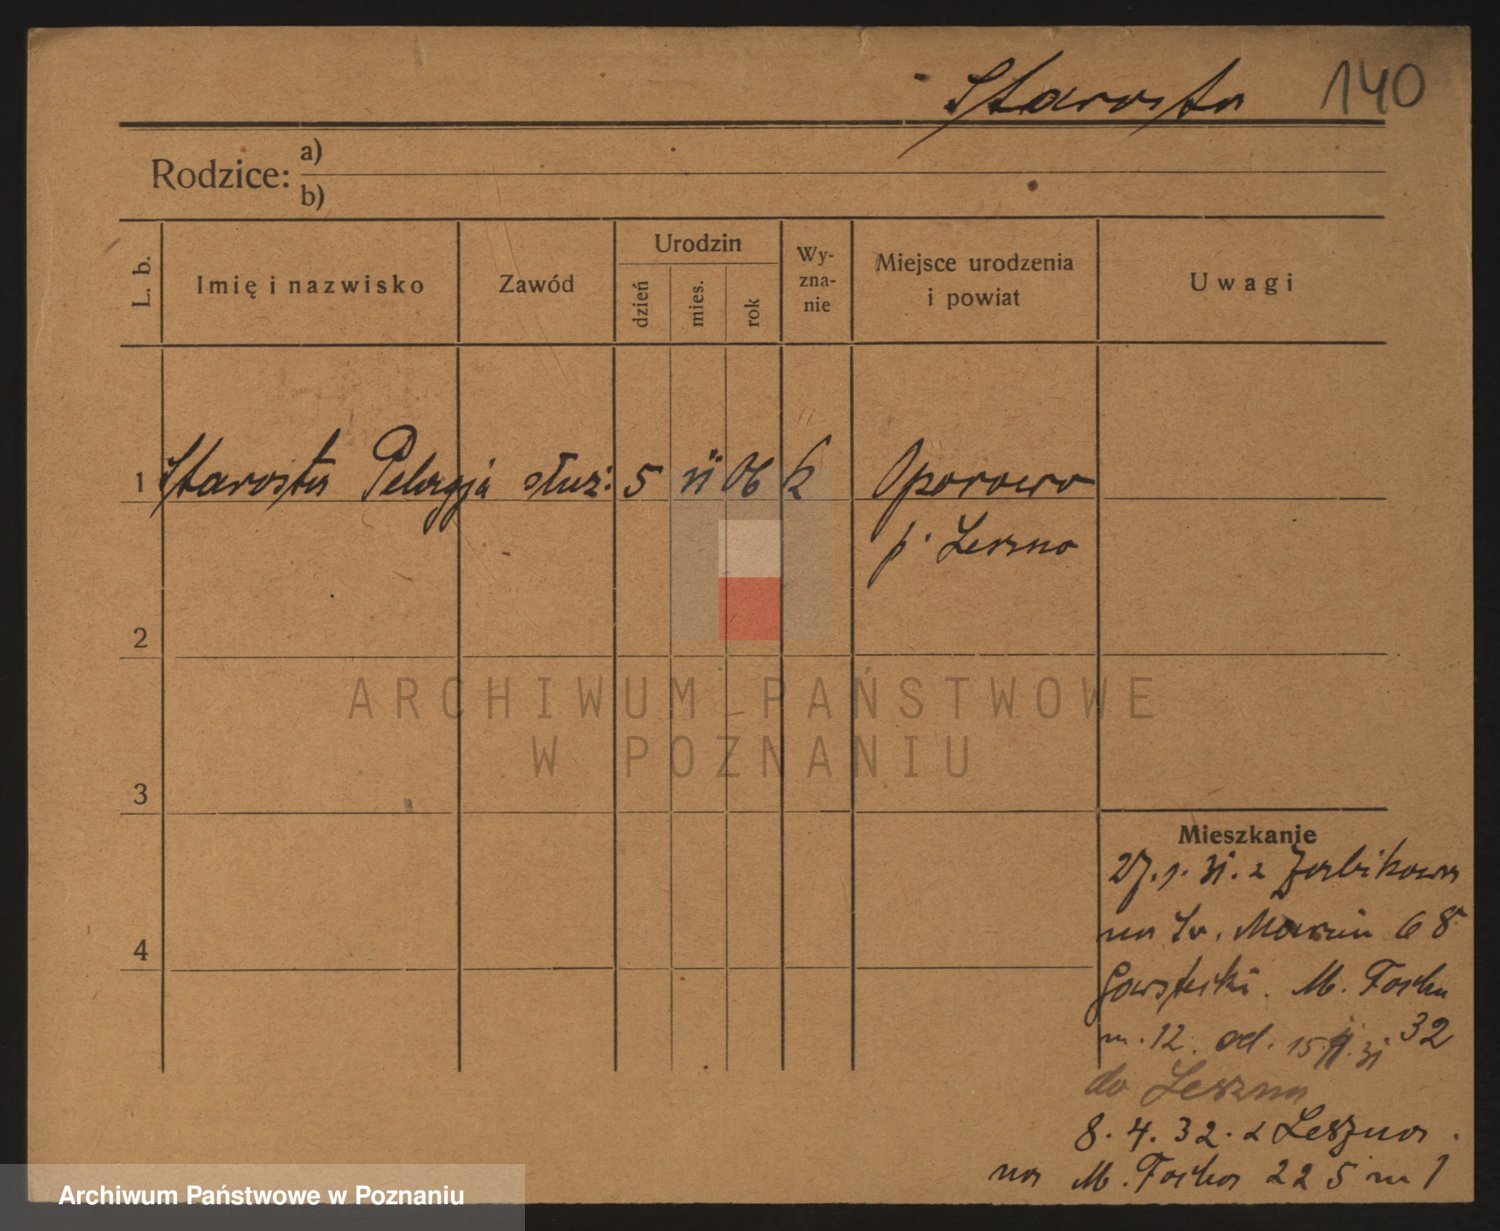 Starosta 140
Rodzice: a)
b)
L. b.
Imię i nazwisko
Zawód
Urodzin
dzień
mies.
rok
Wy-
zna-
nie
Miejsce urodzenia
i powiat
Uwagi
1 Starosta Pelagja służ. 5 II 06 k Oporowo
p. Leszno
2
ARCHIWUM PAŃSTWOWE
W POZNANIU
3
Mieszkanie
27.1.31. z Żabikowa
na Św. Marcin 68
M. Focha
m. 12. od. 15. 31 32
do Leszna
8.4.32. z Leszna.
na M. Focha 225 m 1
4
Archiwum Państwowe w Poznaniu